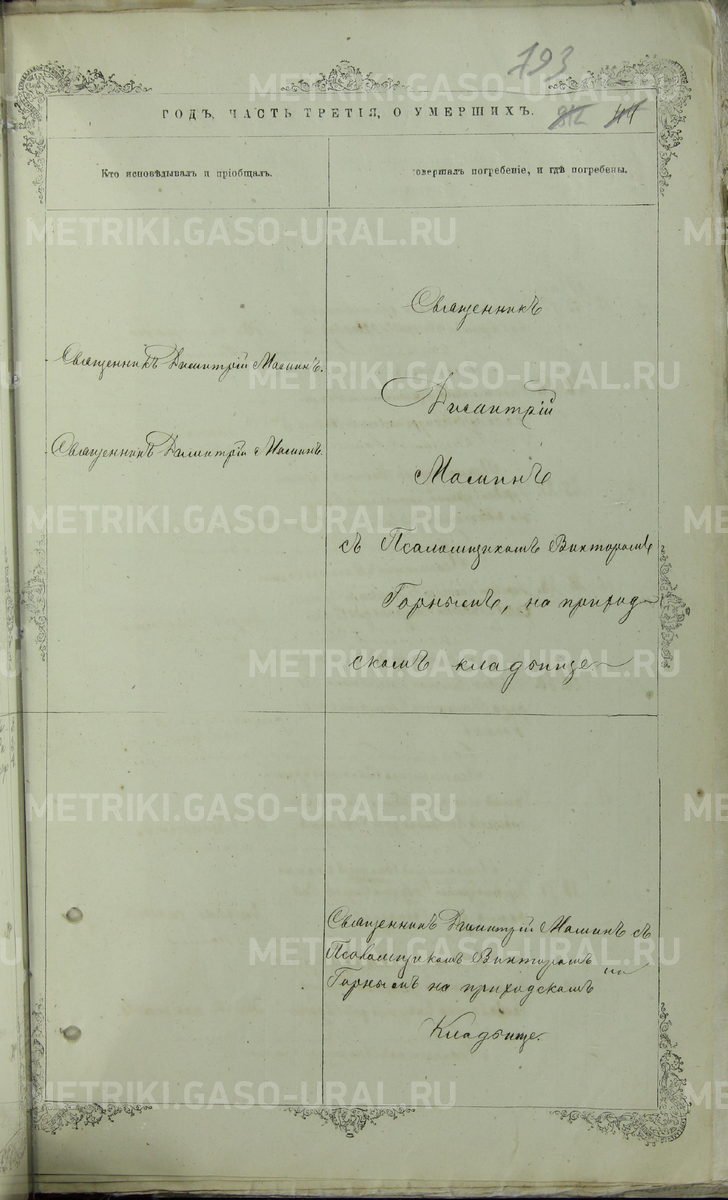 193
ГОДЪ, ЧАСТЬ ТРЕТІЯ, О УМЕРШИХЪ.
Кто исповѣдывалъ и пріобщалъ.
овершалъ погребеніе, и гдѣ погребены.
Священникъ Димитрій Маминъ.
Священникъ Димитрій Маминъ.
Священникъ
Димитрій
Маминъ
съ Псаломщикомъ Викторомъ
Горнымъ, на приход-
скомъ кладбище
Священникъ Димитрій Маминъ съ
Псаломщикомъ Викторомъ
Горнымъ на приходскомъ
Кладбище.
METRIKI.GASO-URAL.RU